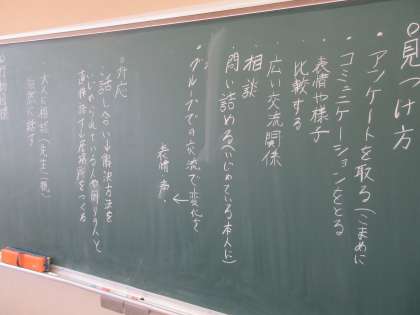 ○見つけ方
・アンケートを取る(こまめに
コミュニケーションをとる
表情や様子
比較する
・広い交流関係
・相談
・問い詰める(いじめている本人に)
・グループでの交流で変化を
表情 声 ←
○対応
・話し合い→解決方法を
いじめられている人 周りの人と
直接話す 居場所をつくる
・大人に相談(先生、親)
自然に話す